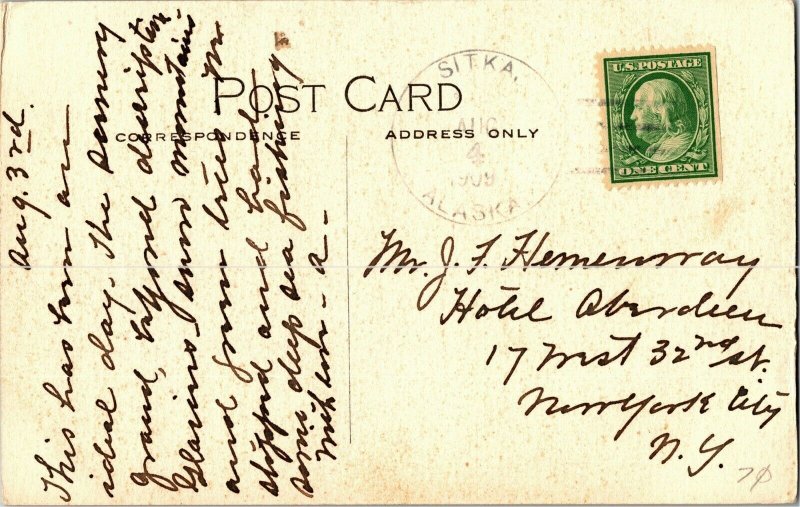 POST CARD
CORRESPONDENCE
ADDRESS ONLY
SITKA,
AUG
4
1909
ALASKA.
U.S. POSTAGE
ONE CENT
Aug. 3rd.
This has been an
ideal day. The scenery
grand, beyond description
Glaciers - snow mountains -
and green trees. We
stopped and had
some deep sea fishing
With love - a -
Mr. J. F. Hemenway
Hotel Aberdeen
17 West 32nd St.
New York City
N.Y.